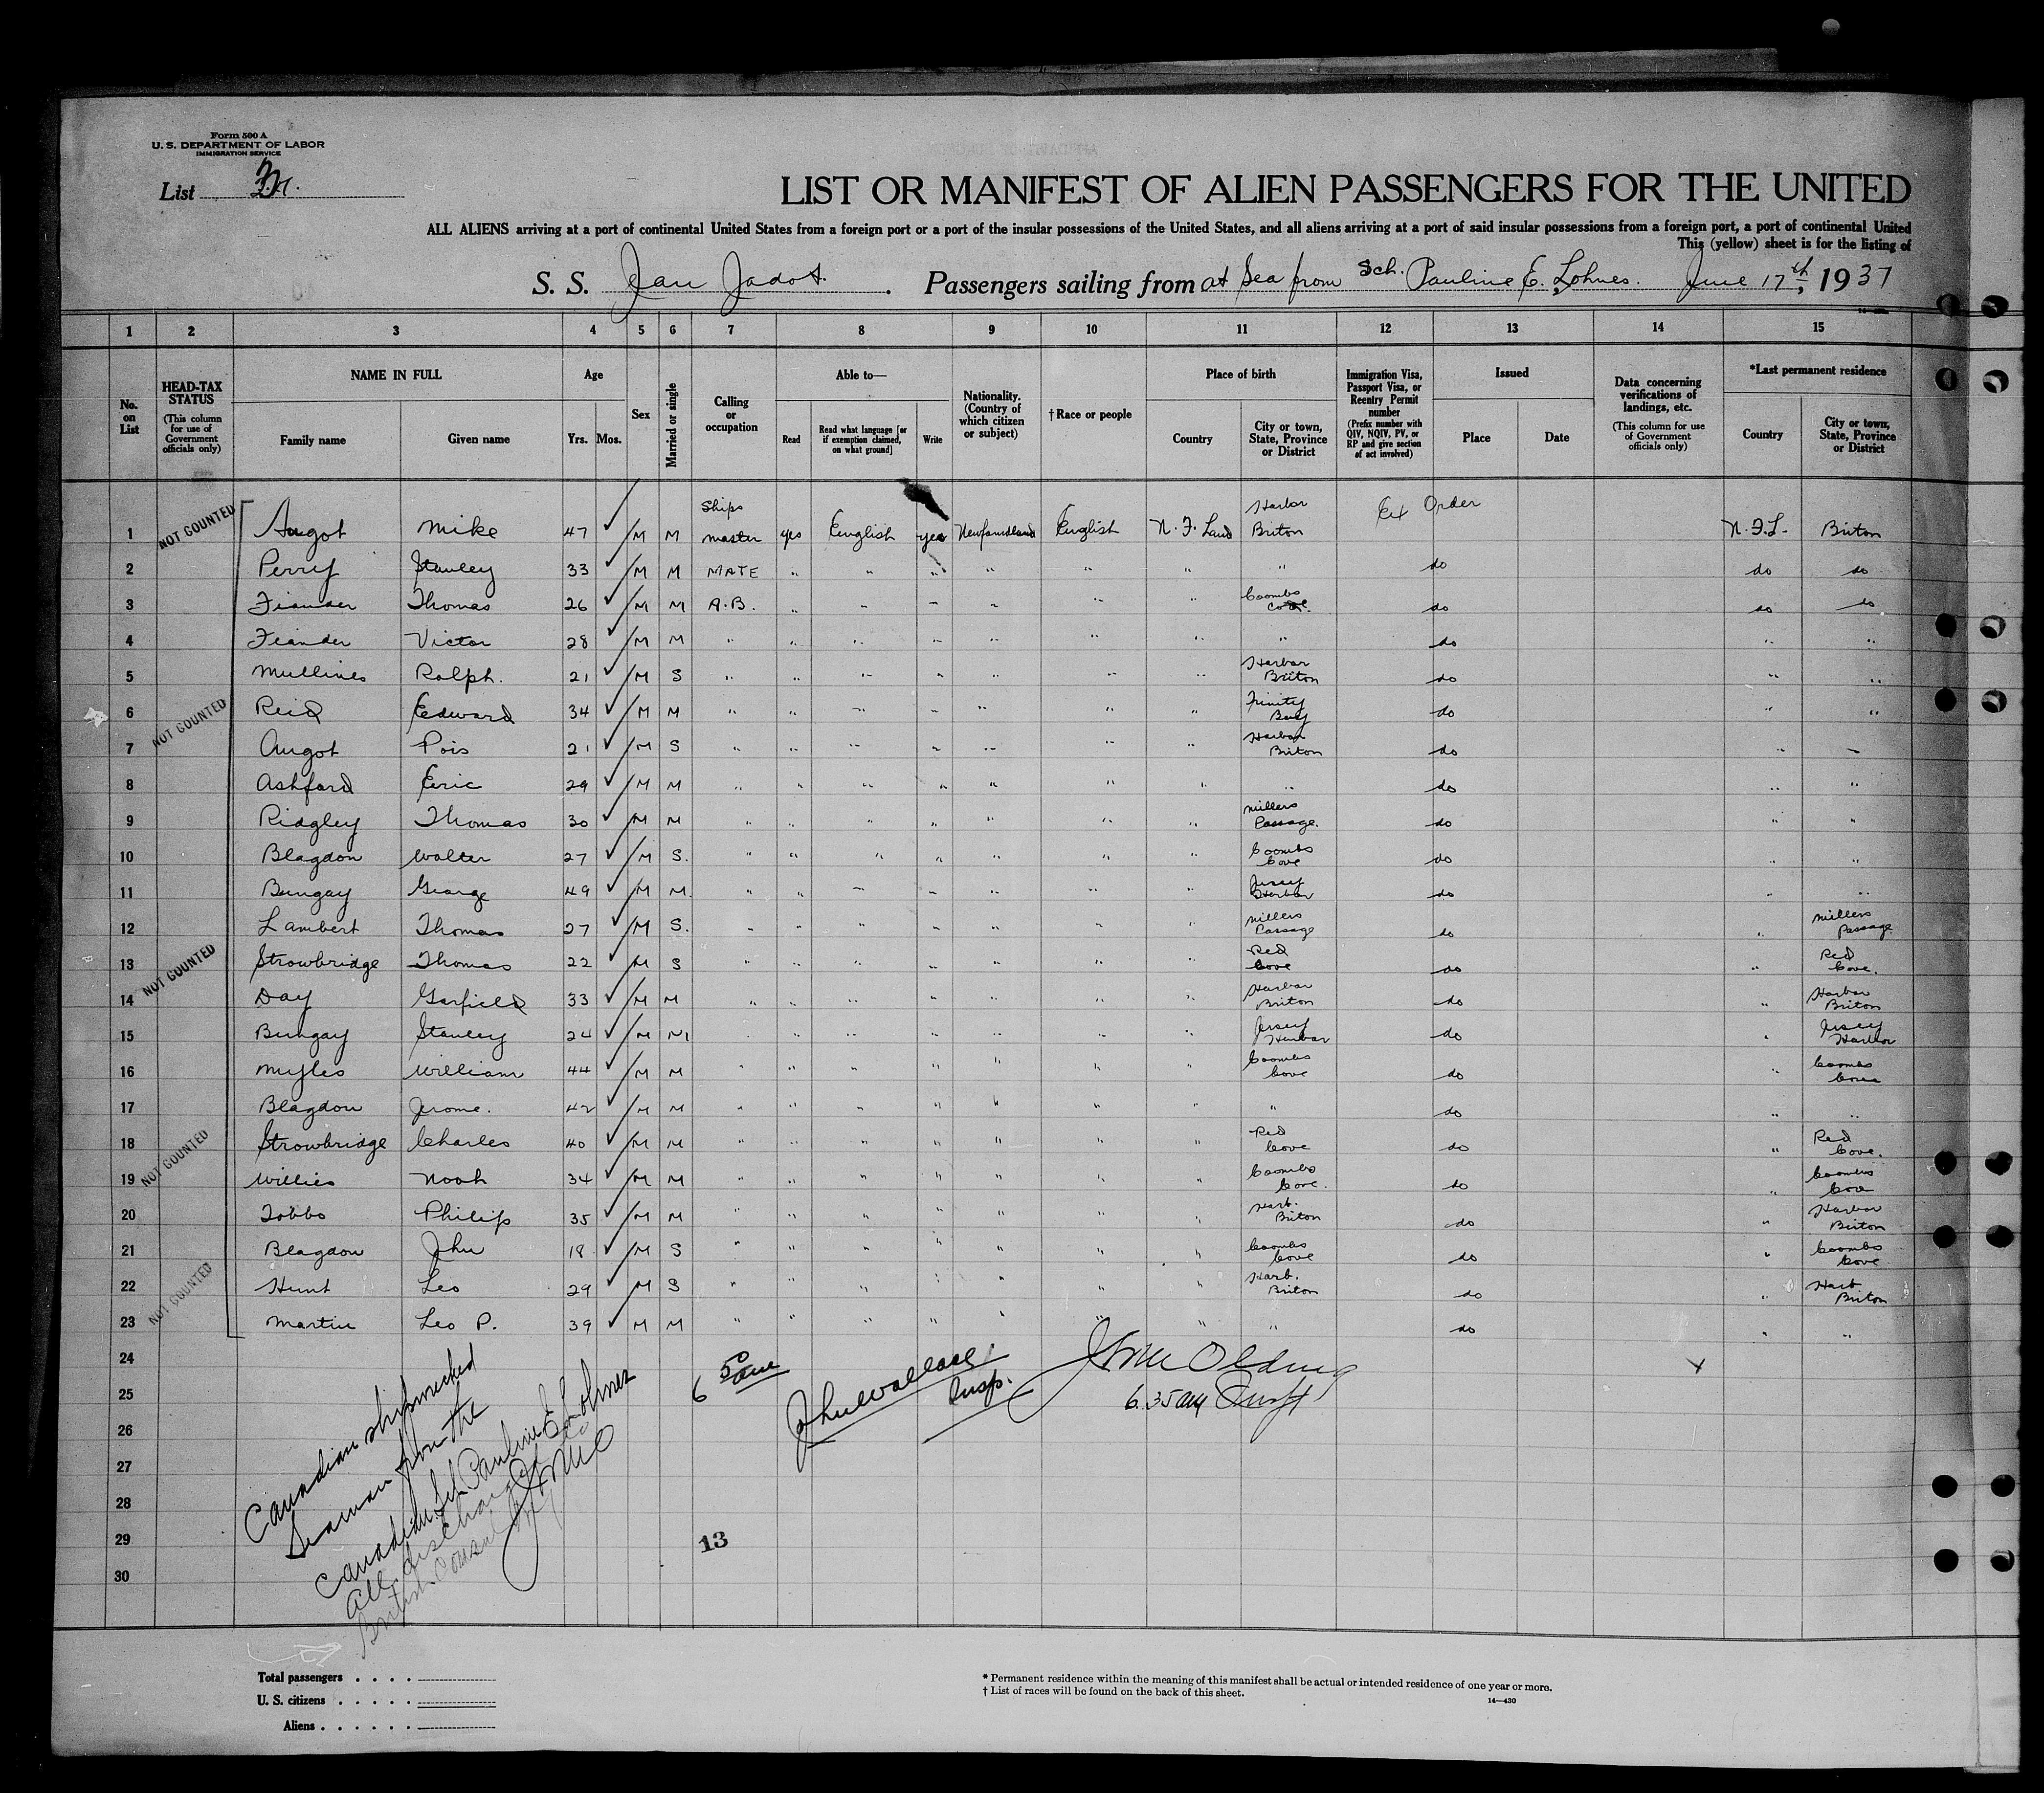 Form 500 A
U. S. DEPARTMENT OF LABOR
IMMIGRATION SERVICE
List
LIST OR MANIFEST OF ALIEN PASSENGERS FOR THE UNITED
ALL ALIENS arriving at a port of continental United States from a foreign port or a port of the insular possessions of the United States, and all aliens arriving at a port of said insular possessions from a foreign port, a port of continental United
This (yellow) sheet is for the listing of
S. S. Jan Jadot. Passengers sailing from at Sea from Sch. Pauline E. Lohnes. June 17th, 1937
1 2 3 4 5 6 7 8 9 10 11 12 13 14 15
No. on List
HEAD-TAX STATUS (This column for use of Government officials only)
NAME IN FULL Family name Given name
Age Yrs. Mos.
Sex
Married or single
Calling or occupation
Able to— Read Read what language [or if exemption claimed, on what ground] Write
Nationality. (Country of which citizen or subject)
†Race or people
Place of birth Country City or town, State, Province or District
Immigration Visa, Passport Visa, or Reentry Permit number (Prefix number with QIV, NQIV, PV, or RP and give section of act involved)
Issued Place Date
Data concerning verifications of landings, etc. (This column for use of Government officials only)
*Last permanent residence Country City or town, State, Province or District
NOT COUNTED
1 Augot Mike 47 ✓ M M Ships master yes English yes Newfoundland English N. F. Land Harbor Briton Ex Order N. F. L. Briton
2 Perry Stanley 33 ✓ M M MATE " " " " " " " do do do
3 Fiander Thomas 26 ✓ M M A.B. " " " " " " Coombs Cove. do do do
4 Fiander Victor 28 ✓ M M " " " " " " " " do " "
5 Mullines Ralph. 21 ✓ M S " " " " " " " Harbor Briton do " "
NOT COUNTED
6 Reid Edward 34 ✓ M M " " " " " " " Trinity Bay do " "
7 Augot Pois 21 ✓ M S " " " " " " " Harbor Briton do " "
8 Ashford Eric 29 ✓ M M " " " " " " " " do " "
9 Ridgley Thomas 30 ✓ M M " " " " " " " Millers Passage. do " "
10 Blagdon Walter 27 ✓ M S. " " " " " " " Coombs Cove do " "
11 Bungay George 49 ✓ M M. " " " " " " " Jersey Harbor do " "
12 Lambert Thomas 27 ✓ M S. " " " " " " " Millers Passage do " Millers Passage
NOT COUNTED
13 Strowbridge Thomas 22 ✓ M S " " " " " " " Red Cove do " Red Cove.
14 Day Garfield 33 ✓ M M " " " " " " " Harbor Briton do " Harbor Briton
15 Bungay Stanley 24 ✓ M M " " " " " " " Jersey Harbor do " Jersey Harbor
16 Myles William 44 ✓ M M " " " " " " " Coombs Cove do " Coombs Cove
17 Blagdon Jerome. 42 ✓ M M " " " " " " " " do " "
NOT COUNTED
18 Strowbridge Charles 40 ✓ M M " " " " " " " Red Cove do " Red Cove.
19 Willies Noah 34 ✓ M M " " " " " " " Coombs Cove. do " Coombs Cove
20 Tobbo Philip 35 ✓ M M " " " " " " " Harb. Briton do " Harbor Briton
21 Blagdon John 18 ✓ M S " " " " " " " Coombs Cove do " Coombs Cove
NOT COUNTED
22 Hunt Leo 29 ✓ M S " " " " " " " Harb. Briton do " Harb Briton
23 Martin Leo P. 39 ✓ M M " " " " " " " " do " "
24
25
26
27
28
29
30
Canadian shipwrecked
Seaman from the
Canadian Sch Pauline E Lohnes
All discharged
British Consul
6 50 am
John Wallace Insp.
6.35 am
13
Total passengers
U. S. citizens
Aliens
* Permanent residence within the meaning of this manifest shall be actual or intended residence of one year or more.
† List of races will be found on the back of this sheet.
14—430